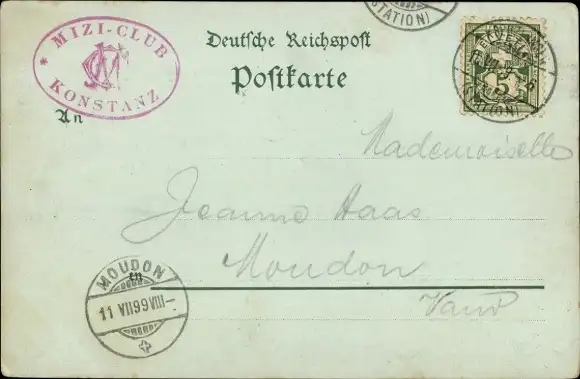 STATION)
MIZI-CLUB
MC
KONSTANZ
Deutsche Reichspost
Postkarte
5
STATION)
An
Mademoiselle
Jeanne Haas
Moudon
in
Vaud
MOUDON
11 VII 99 VIII-